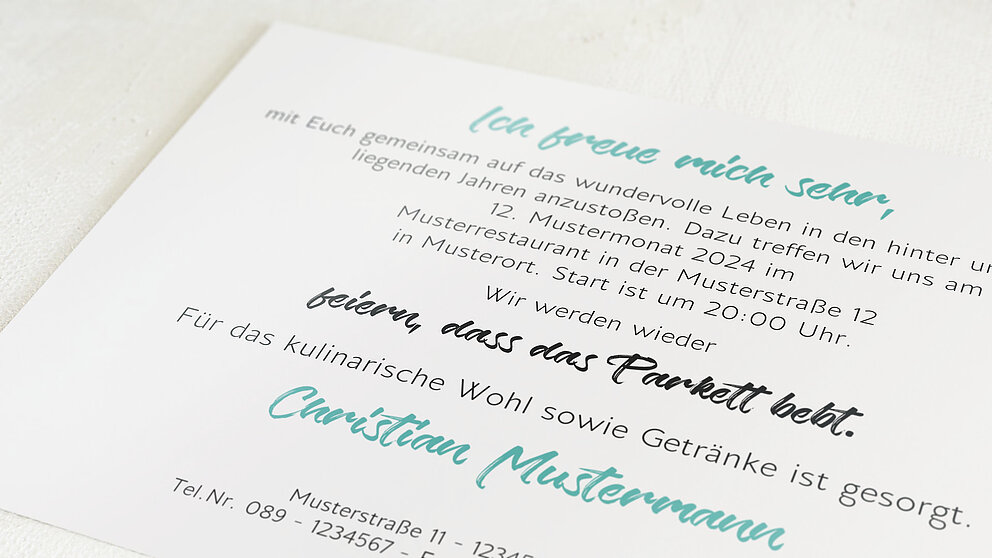 Ich freue mich sehr,
mit Euch gemeinsam auf das wundervolle Leben in den hinter
liegenden Jahren anzustoßen. Dazu treffen wir uns am
12. Mustermonat 2024 im
Musterrestaurant in der Musterstraße 12
in Musterort. Start ist um 20:00 Uhr.
Wir werden wieder
feiern, dass das Parkett bebt.
Für das kulinarische Wohl sowie Getränke ist gesorgt.
Christian Mustermann
Musterstraße 11 - 12345
Tel.Nr. 089 - 1234567 -